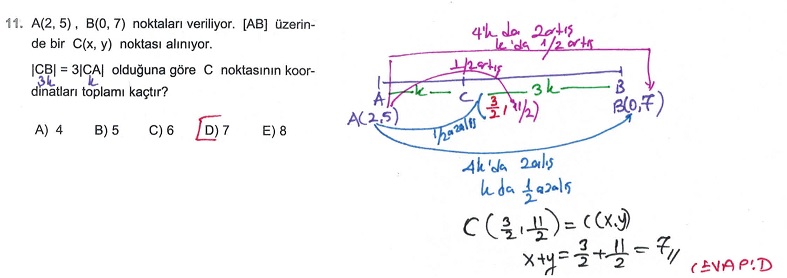 11. A(2, 5) , B(0, 7) noktaları veriliyor. [AB] üzerin-
de bir C(x, y) noktası alınıyor.
|CB| = 3|CA| olduğuna göre C noktasının koor-
3k k
dinatları toplamı kaçtır?
A) 4 B) 5 C) 6 D) 7 E) 8
4k da 2artış
k'da 1/2 artış
1/2artış
A k C 3k B
A(2,5) (3/2, 11/2) B(0,7)
1/2azalış
4k'da 2azalış
k da 1/2 azalış
C(3/2, 11/2) = C(x,y)
x+y = 3/2 + 11/2 = 7//
CEVAP:D